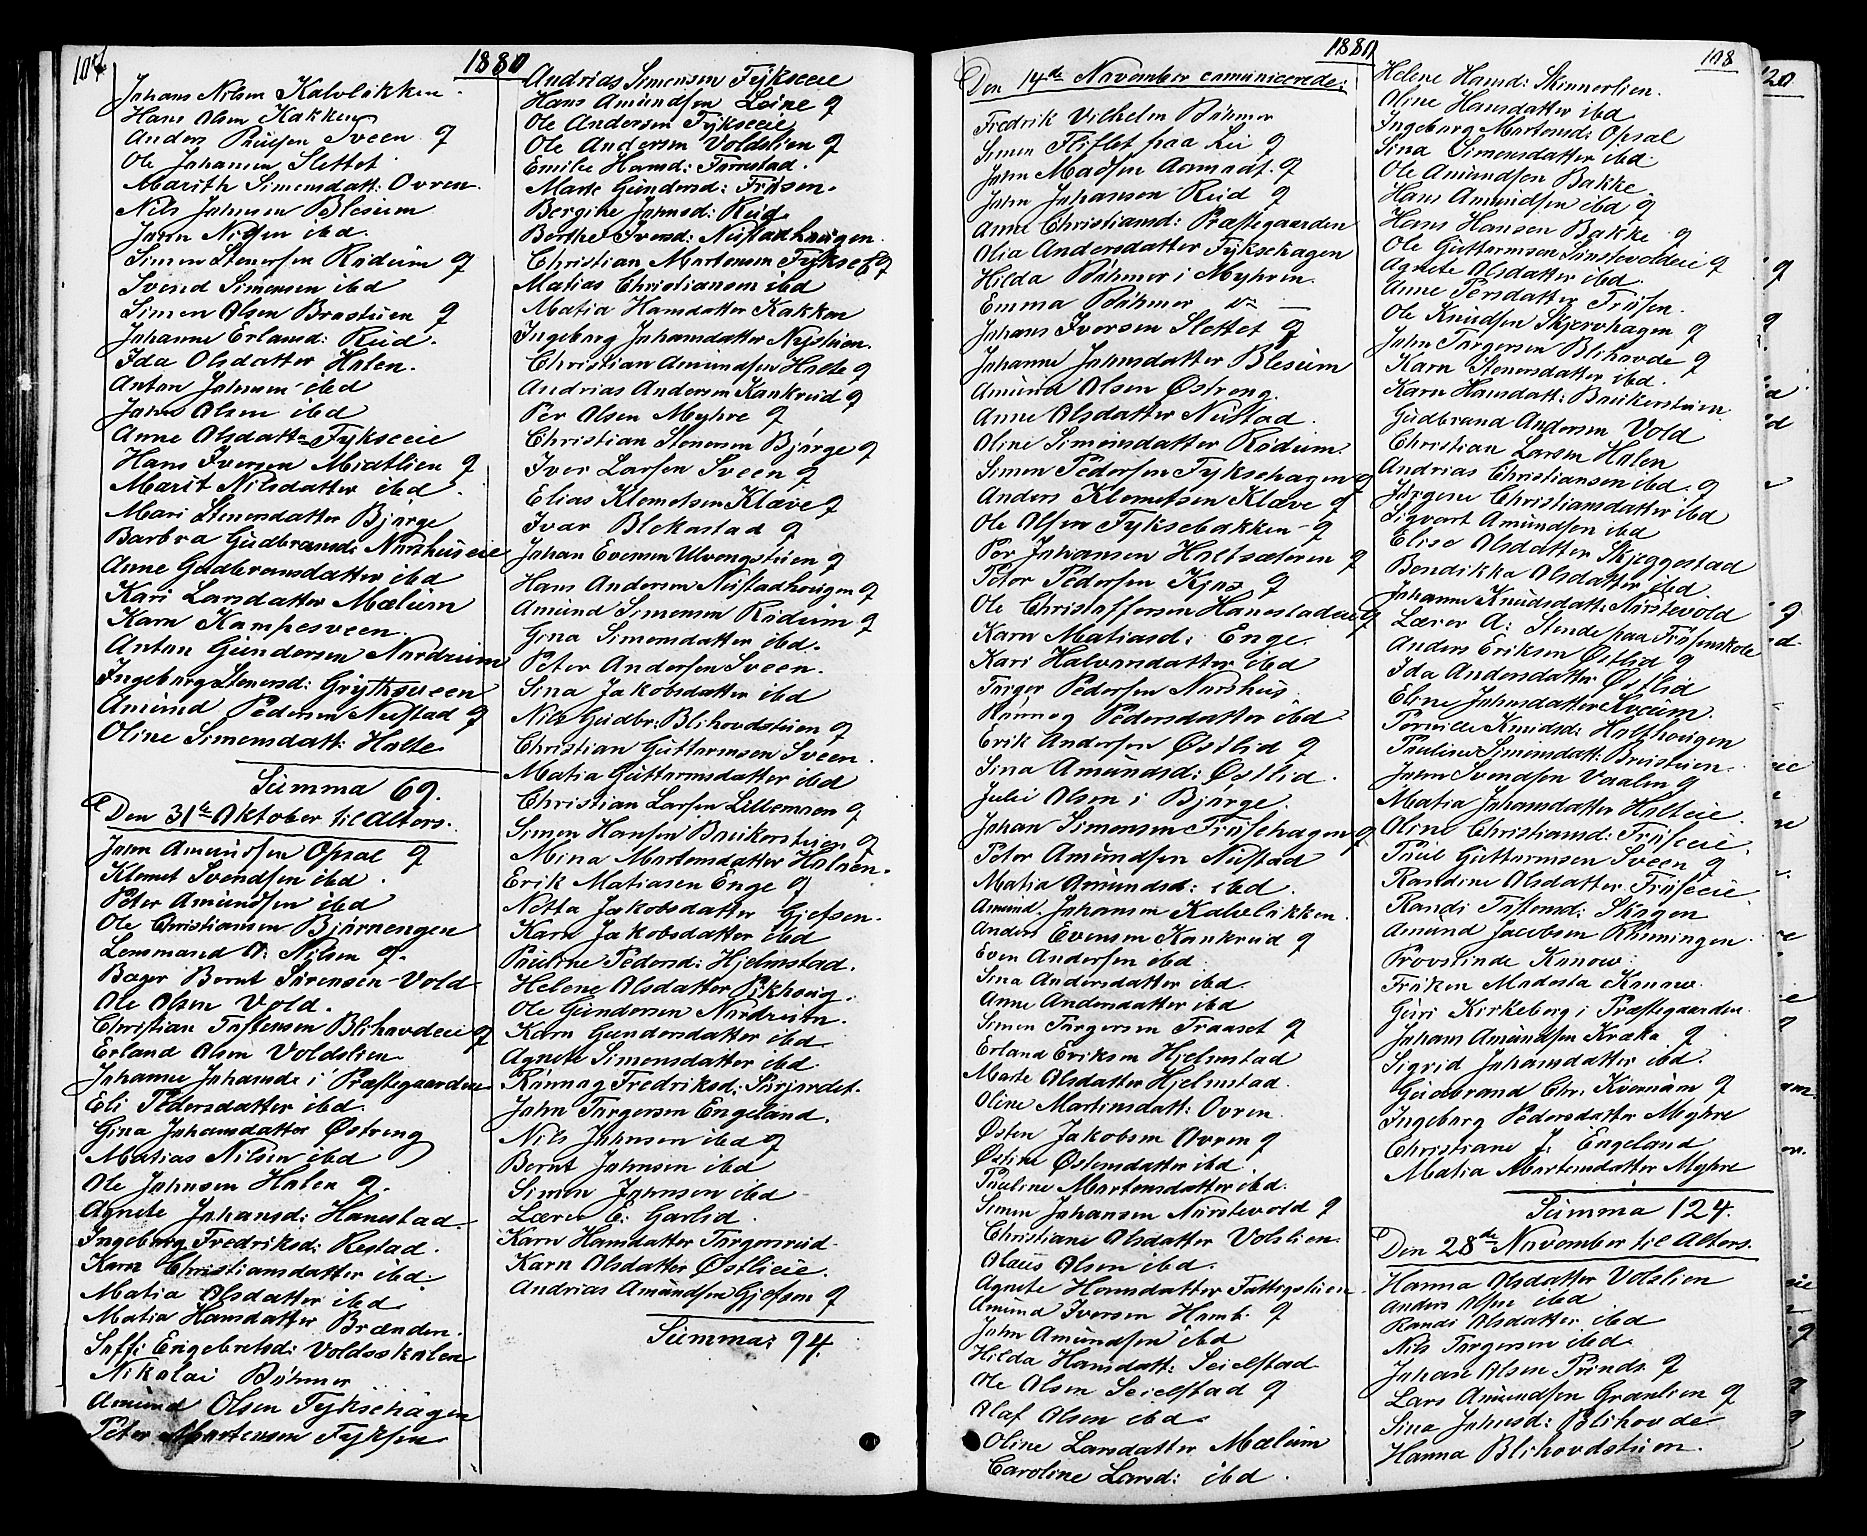 107
1880
Johans Nilsen Kalvløkken.
Hans Olsen Kakken
Anders Poulsen Sveen g
Ole Johansen Slettet
Marith Simensdatt: Ovren.
Nils Johnsen Blesum
John Nilsen ibd.
Simen Stenersen Rødum g
Svend Simensen ibd
Simen Olsen Brostuen g
Johanne Erlansd: Rud.
Ida Olsdatter Holen.
Anton Johnsen ibd
John Olsen ibd
Anne Olsdattr Fykseeie
Hans Iversen Midtlien g
Marit Nilsdatter ibd.
Mari Stenersdatter Bjørge
Barbra Gudbransd: Norshuseie
Anne Gudbransdatter ibd
Kari Larsdatter Mælum
Karn Kampesveen.
Anton Gundersen Nordrum
Ingeborg Stenersd: Grythsveen
Amund Pedersen Nustad g
Oline Simensdatt: Holte
Summa 69.
Den 31te Oktober til Alters.
John Amundsen Opsal g
Klemet Svendsen ibd.
Peter Amundsen ibd
Ole Christiansen Bjørnengen
Lensmand O: Nilsen g.
Bager Bernt Sørensen Vold
Ole Olsen Vold.
Christian Tostensen Blihovdeie g
Erland Olsen Voldslien
Johanne Johansd: i Præstegaarden
Eli Pedersdatter ibd.
Gina Johansdatter Østreng
Matias Nilsen ibd
Ole Johnsen Holen g.
Agnete Johansd: Hanestad
Ingeborg Fredriksd: Restad.
Karn Christiansdatter ibd.
Matia Olsdatter ibd
Matia Hansdatter Brænden.
Soffi Engebretsd: Voldsskolen
Nikolai Bøhmer
Amund Olsen Fyksehagen
Peter Mortensen Fyksen
Andrias Simensen Fykseeie
Hans Amundsen Loine g
Ole Andersen Fykseeie
Ole Andersen Voldslien g
Emilie Hansd: Forrestad.
Marte Gundersd: Frøsen.
Bergine Johnsd: Rud.
Berthe Iversd: Nustadhaugen.
Christian Mortensen Fykse g
Matias Christiansen ibd
Matia Hansdatter Kakken
Ingeborg Johansdatter Nystuen.
Christian Amundsen Holte g
Andrias Andersen Kankrud g
Per Olsen Myhre g
Christian Stenersen Bjørge g
Iver Larsen Sveen g
Elias Klemetsen Klæve g
Ivar Blekastad g
Johan Evensen Ulvengstuen g
Hans Andersen Nustadhougen g
Amund Simensen Rødum g
Gina Simensdatter ibd.
Peter Andersen Sveen.
Sina Jakobsdatter ibd
Nils Gudbr: Blihovdstuen g
Christian Guttormsen Sveen.
Matia Guttormsdatter ibd
Christian Larsen Lillemoen g
Simen Hansen Baukerstuen g
Mina Martensdatter Holsen.
Erik Matiasen Enge g
Netta Jakobsdatter Gjefsen.
Karn Jakobsdatter ibd
Pauline Pedersd: Hjelmstad.
Helene Olsdatter Pikhoug.
Ole Gundersen Nordrum.
Karn Gundersdatter ibd
Agnete Simensdatter ibd
Rønnog Fredriksd: Sørjordet.
John Torgersen Engeland.
Nils Johnsen ibd g
Bernt Johnsen ibd
Simen Johnsen ibd
Lærer E: Garlid.
Karn Hansdatter Torgersrud
Karn Olsdatter Østlieie.
Andrias Amundsen Gjefsen g
Summa: 94.
1880
Den 14de November comunicerede:
Fredrik Vilhelm Bøhmer
Simen Fliflet paa Lei g
John Madsen Aamodt. g
John Johansen Rud g
Anne Christiansd: Præstegaarden
Olia Andersdatter Fyksehagen
Hilda Bøhmer i Myhren.
Emma Bøhmer do —
Johans Iversen Slettet g
Johanne Johnsdatter Blesum
Amund Olsen Østreng.
Anne Olsdatter Nustad.
Oline Simensdatter Rødum.
Simen Pedersen Fyksehagen g
Anders Klemetsen Klæve g
Ole Olsen Fyksebakken g
Per Johansen Holtsæteren g
Peter Pedersen Kjos g
Ole Christoffersen Hanestadeie g
Karn Matiasd: Enge.
Kari Halvorsdatter ibd
Torger Pedersen Norshus
Rønnog Pedersdatter ibd
Erik Andersen Østlid g
Sina Amundsd: Østlid.
Julie Olsen i Bjørge.
Johan Simensen Frøsehagen g
Peter Amundsen Nustad
Matia Amundsd: ibd.
Amund Johansen Kalveløkken.
Anders Evensen Kankrud g
Even Andersen ibd
Sina Andersdatter ibd
Anne Andersdatter ibd
Simen Torgersen Traaset g
Erland Eriksen Hjelmstad
Marte Olsdatter Hjelmstad.
Oline Martinsdatt: Ovren.
Østen Jakobsen Ovren g
Østine Østensdatter ibd.
Pauline Mortensdatter ibd.
Simen Johansen Nørstevold g
Christiane Olsdatter Volslien.
Olaus Olsen ibd.
Agnete Hansdatter Fattigstuen
Amund Iversen Hamb. g
John Amundsen ibd
Hilda Hansdatt: Seielstad
Ole Olsen Seielstad g
Olaf Olsen ibd.
Oline Larsdatter Mælum
Caroline Larsd: ibd.
108
Helene Hansd: Skinnerlien.
Oline Hansdatter ibd
Ingeborg Martensd: Opsal
Sina Simensdatter ibd.
Ole Amundsen Bakke
Hans Amundsen ibd g
Hans Hansen Bakke g
Ole Guttormsen Simstevoldeie g
Agnete Olsdatter ibd.
Anne Persdatter Frøsen.
Ole Knudsen Skjervhagen g
John Torgersen Blihovde g
Karn Stenersdatter ibd.
Karn Hansdatt: Baukerstuen
Gudbrand Andersen Vold
Christian Larsen Holen
Andrias Christiansen ibd. g
Jørgene Christiansdatter ibd
Sigvart Amundsen ibd
Elise Olsdatter Skjeggestad
Bendikka Olsdatter ibd.
Johanne Knudsdatt: Nørstevold
Lærer A: Stende paa Frøsenskole
Anders Eriksen Østlid g
Ida Andersdatter Østlid
Eline Johnsdatter Kvum.
Pernille Knudsd: Holthougen
Pauline Simensdatt: Breistuen.
John Svendsen Vaalen g
Matia Johansdatter Holteie.
Oline Christiansd: Frøseeie.
Paul Guttormsen Sveen g
Randine Olsdatter Frøseeie.
Randi Tostensd: Skogen
Amund Jacobsen Rønningen.
Provstinde Kanow.
Frøken Modesta Kanow.
Guri Kirkeberg i Præstegaarden
Johans Amundsen Kræke g
Sigrid Johansdatter ibd.
Gudbrand Chr. Kvernum g
Ingeborg Pedersdatter Myhre
Christiane J. Engeland
Matia Martensdatter Myhre
Summa 124.
Den 28de November til Alters.
Hanna Olsdatter Volslien
Anders Olsen ibd
Randi Olsdatter ibd
Nils Torgersen ibd
Johan Olsen Prinds g
Lars Amundsen Grænlien g
Sina Johnsd: Blihovde
Hanna Blihovdstuen.
120